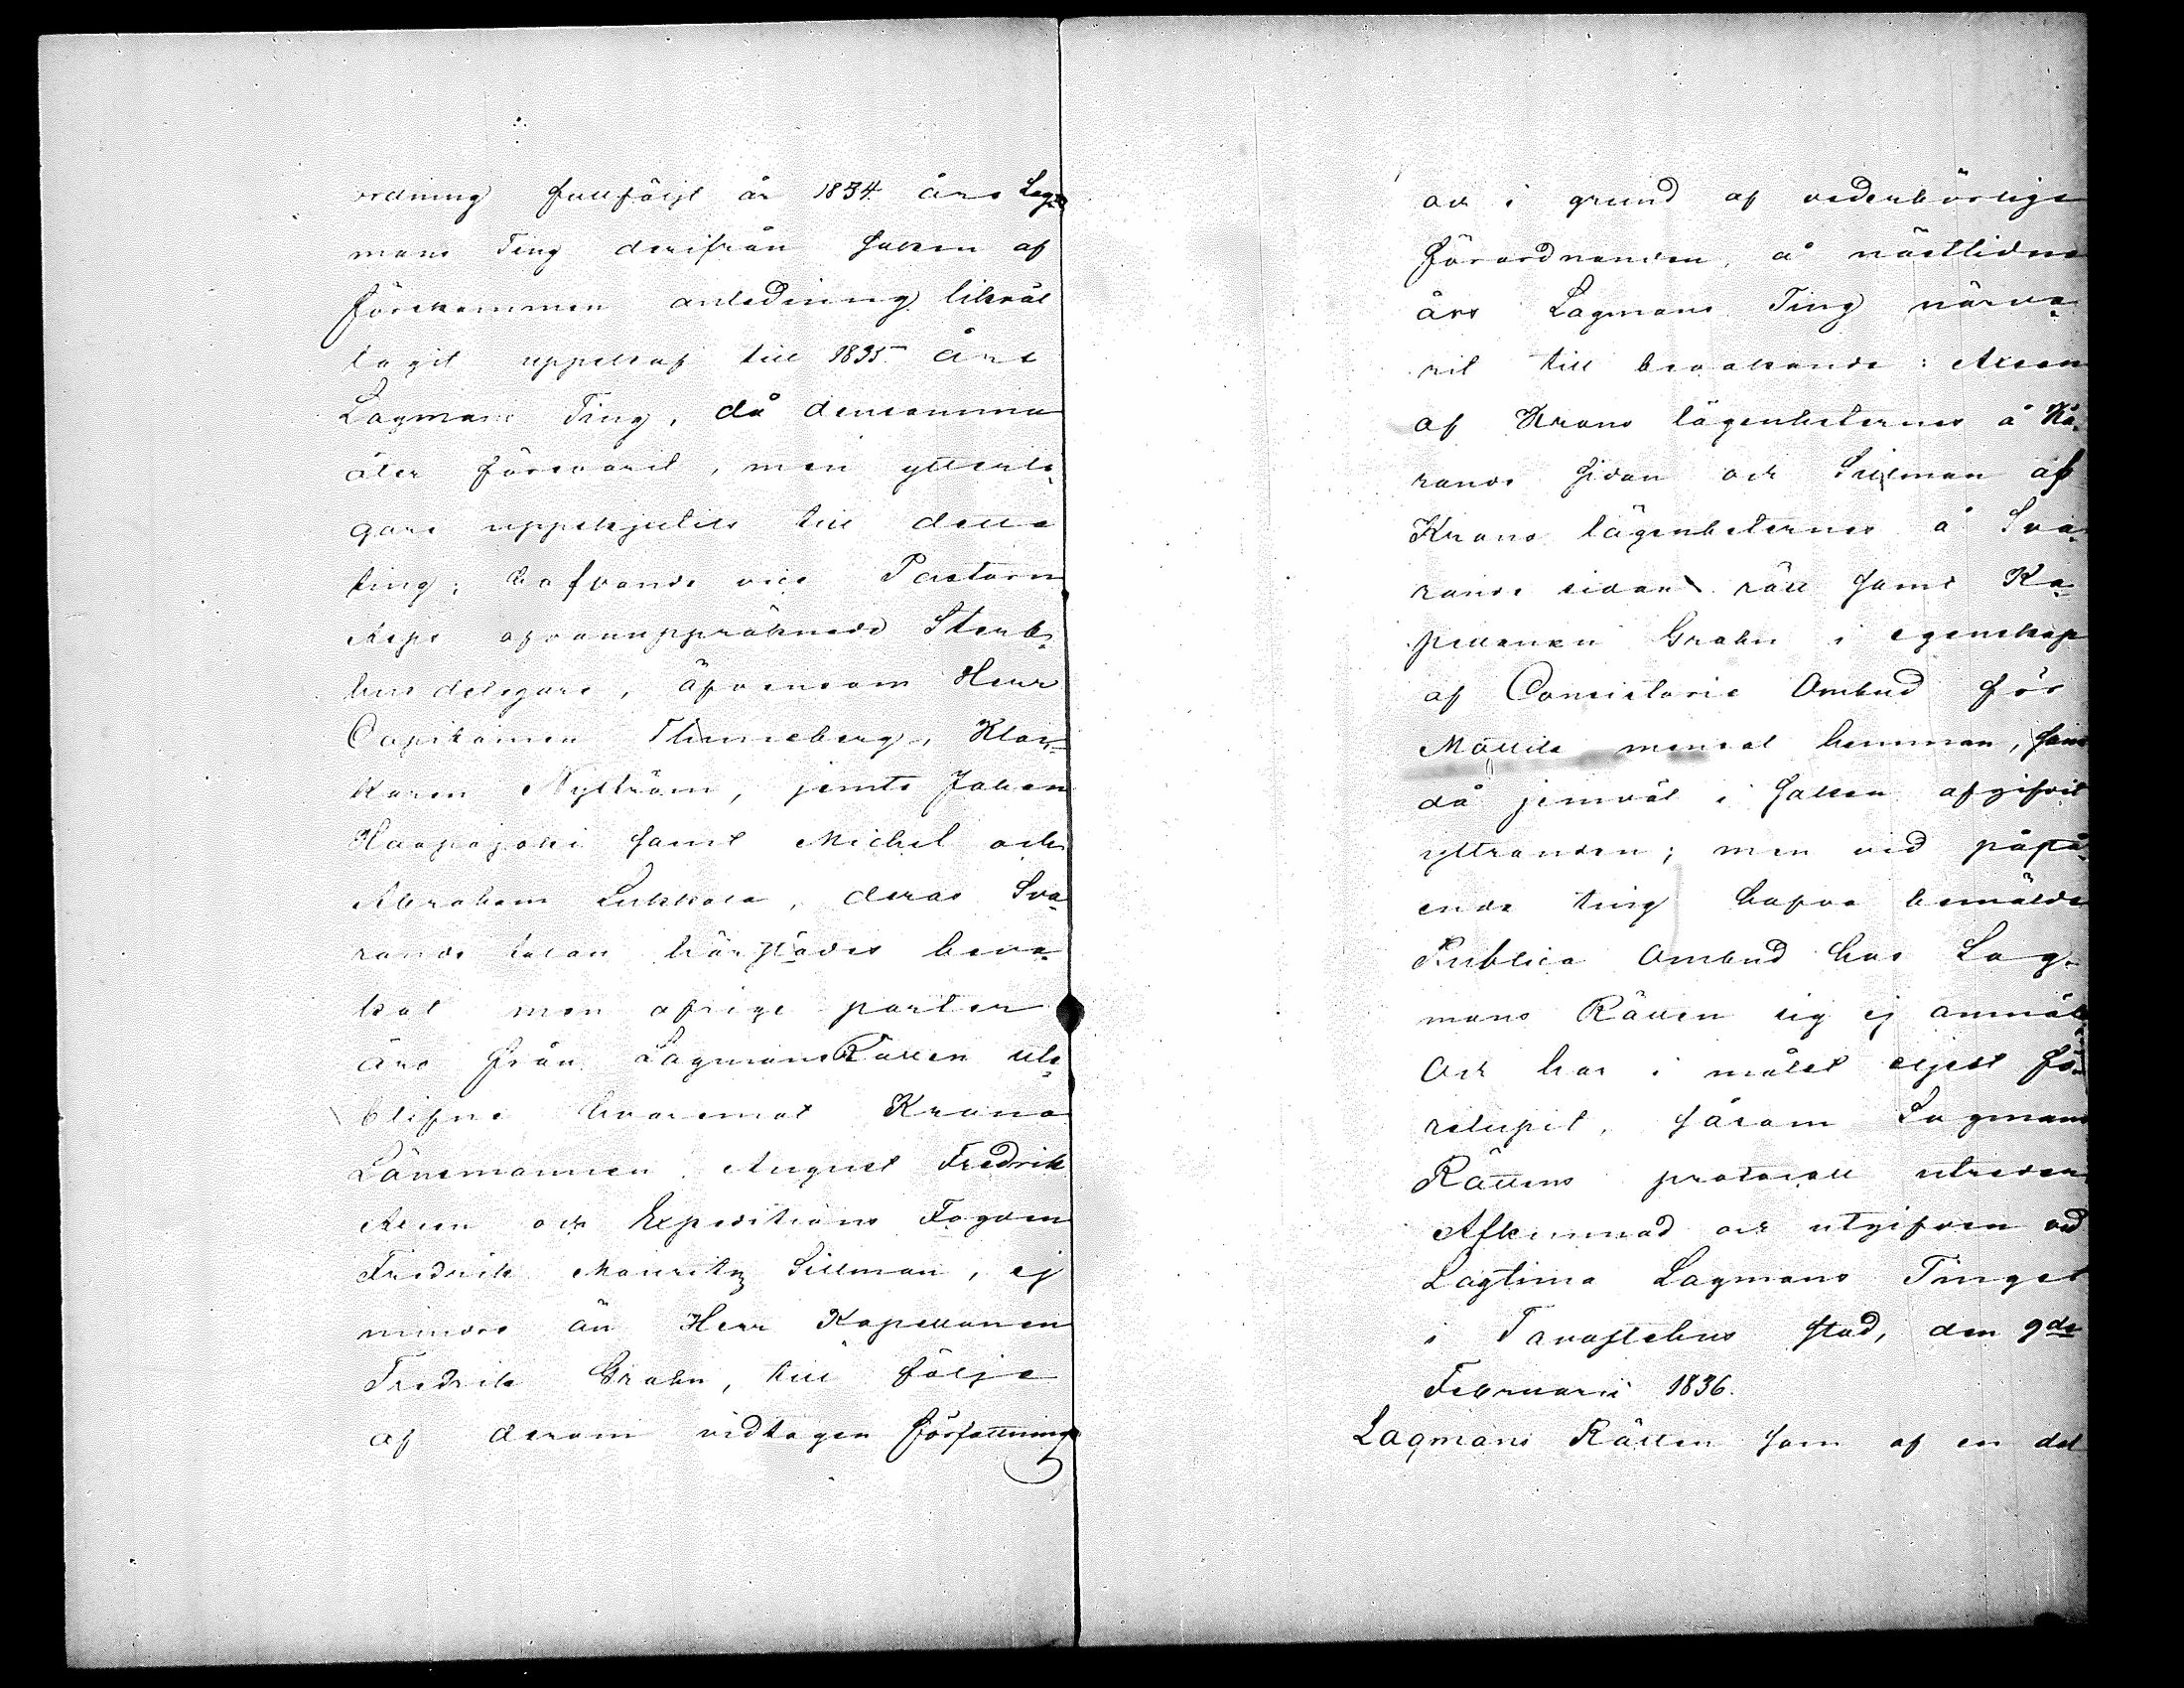 ordning fullföljt år 1834 års Lag¬
mans Ting derifrån saken af
förekommen anledning likväl
tagit uppskof till 1835 års
Lagmans Ting, då densamma
åter förevarit, men ytterli¬
gare uppskjutits till detta
ting; hafvande vice Pastorn
Aejs ofvanuppräknade Sterb¬
hus delegare, äfvensom Herr
Capitainen Thuneberg, Kloc¬
karen Nyström, jemte Johan
Haapajoki samt Michel och
Abraham Lukkala, deras Sva¬
rande talan härstädes beva¬
kat men öfrige parter
äro från Lagmans Rätten ute¬
blifne hvaremot Krono
Länsmannen August Fredrik
Aleen och Expeditions Fogden
Fredrik Mauritz Sillman, ej
mindre än Herr Kapellanen
Fredrik Grahn, till följe
af derom vidtagen författning
och i grund af vederbörlige
förordnanden, å nästlidne
års Lagmans Ting närva¬
rit till bevakande: Aleen
af Krono lägenheternes å Kä¬
rande sidan och Sillman af
Krono lägenheternes å Sva¬
rande sidan rätt samt Ka¬
pellanen Grahn i egenskap
af Consistorie Ombud för
Mattila mensal hemman, som
då jemväl i saken afgifvit
yttranden; men vid påstå¬
ende ting hafva bemälde
Publica Ombud hos Lag¬
mans Rätten sig ej anmält
Och har i målet eljest fö¬
relupit, såsom Lagmans
Rättens protocoll utreder
Afkunnad och utgifven vid
Lagtima Lagmans Tinget
i Tavastehus stad, den 9de
Februarii 1836.
Lagmans Rätten som af en del